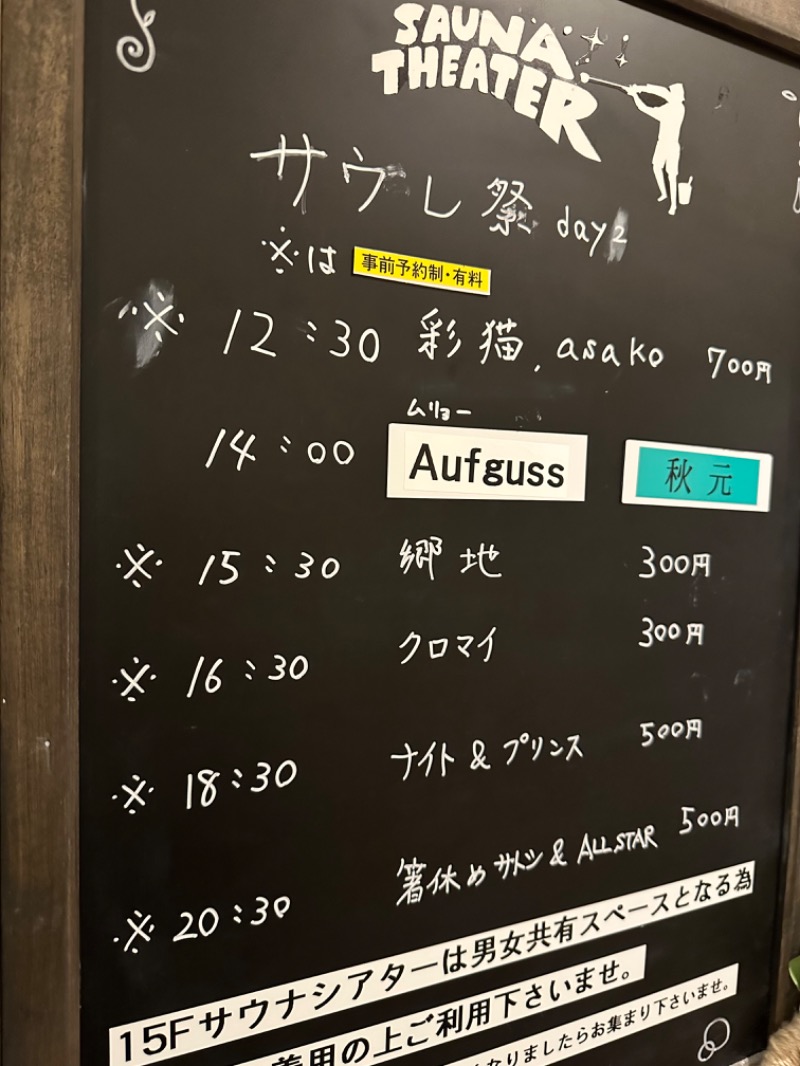 SAUNA
THEATER
サウし祭 day2
※は 事前予約制・有料
※ 12:30 彩猫, asako 700円
ムリョー
14:00 Aufguss 秋元
※ 15:30 郷地 300円
※ 16:30 クロマイ 300円
※ 18:30 ナイト & プリンス 500円
※ 20:30 箸休めサトシ & ALL STAR 500円
15Fサウナシアターは男女共有スペースとなる為
着用の上ご利用下さいませ。
なりましたらお集まり下さいませ。